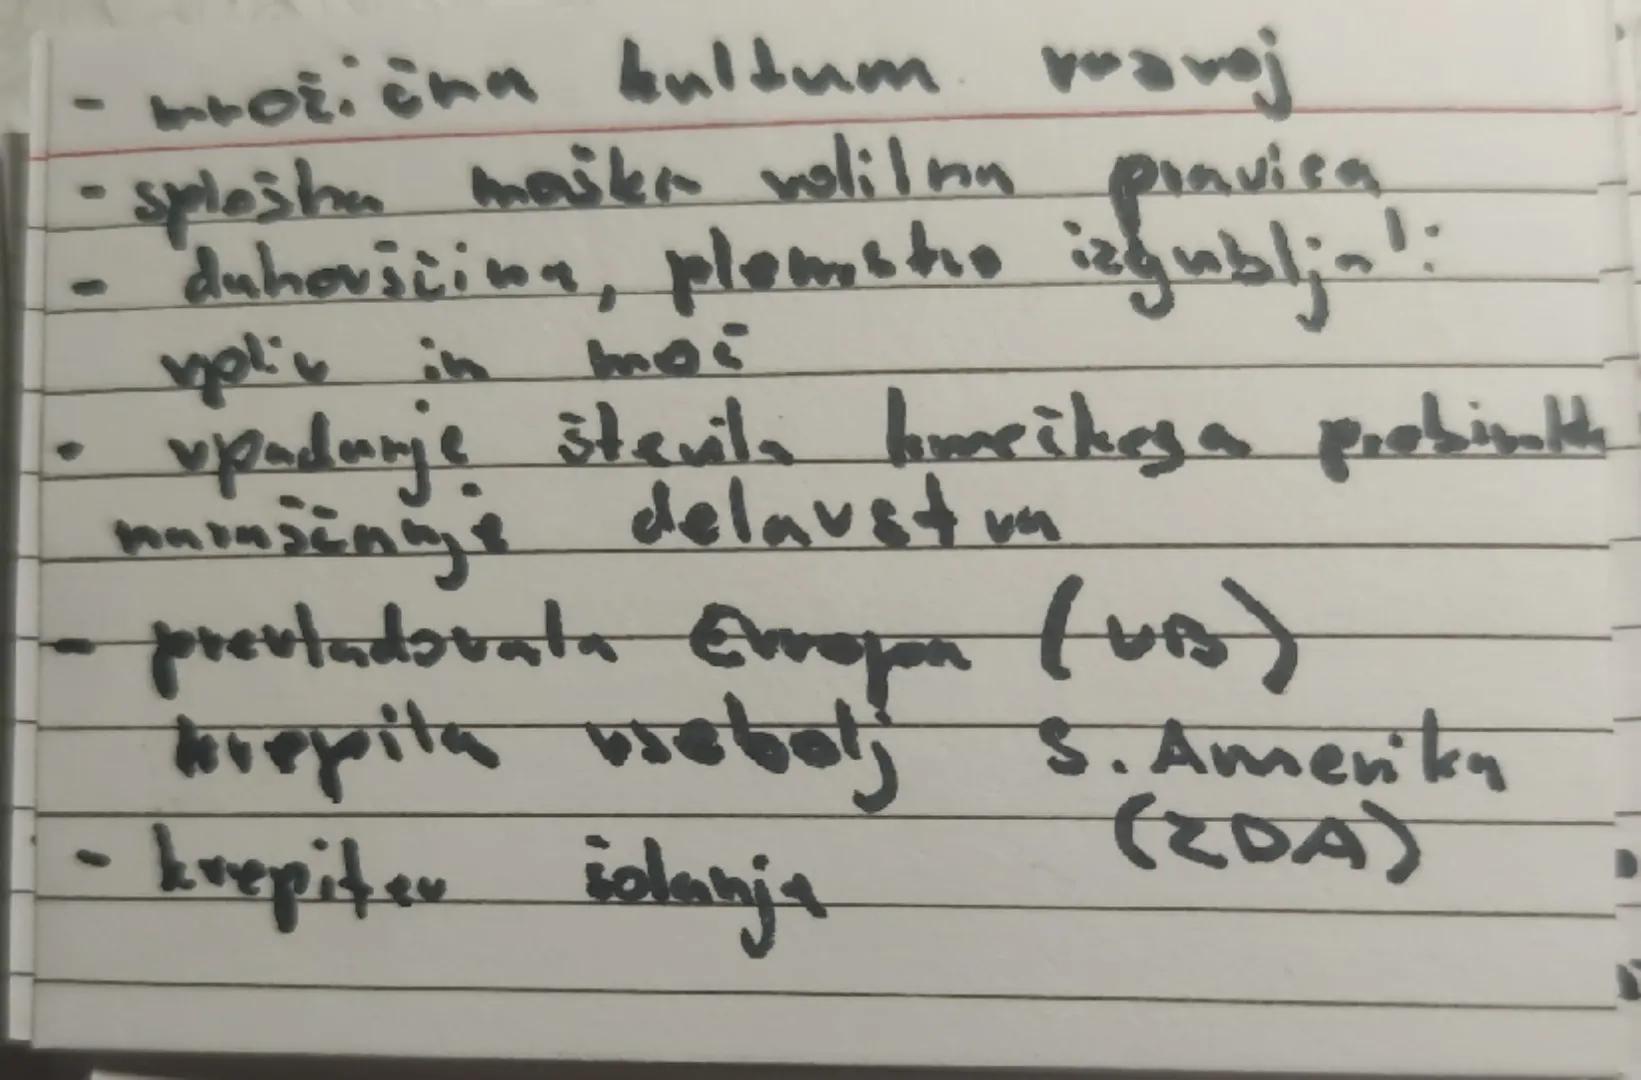 - množična kultura razvoj
- splošna moška volilna pravica
- duhovščina, plemstvo izgubljali
vpliv in moč
- upadanje števila kmečkega
naraščanje delavstva
- prevladovala Evropa (VB)
krepila vsebolj S. Amerika
(ZDA)
- krepitev šolanja